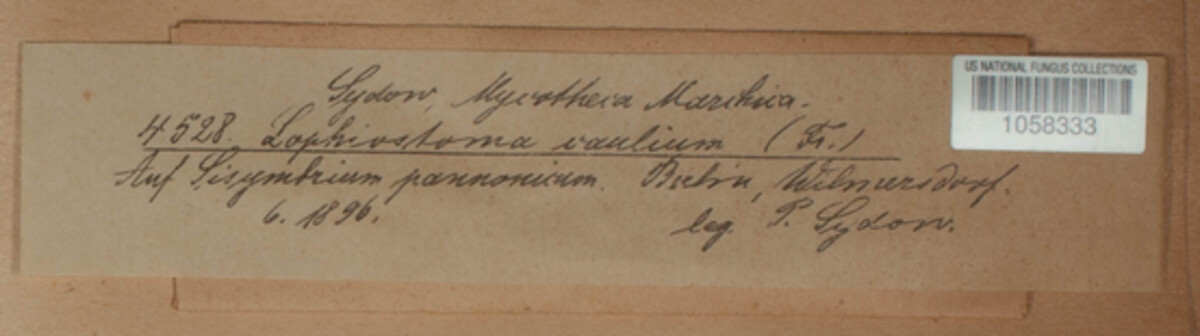 Sydow, Mycotheca Marchica.
US NATIONAL FUNGUS COLLECTIONS
1058333
4528. Lophiostoma caulium (Fr.)
Auf Sisymbrium pannonicum. Berlin, Wilmersdorf.
6. 1896. leg. P. Sydow.